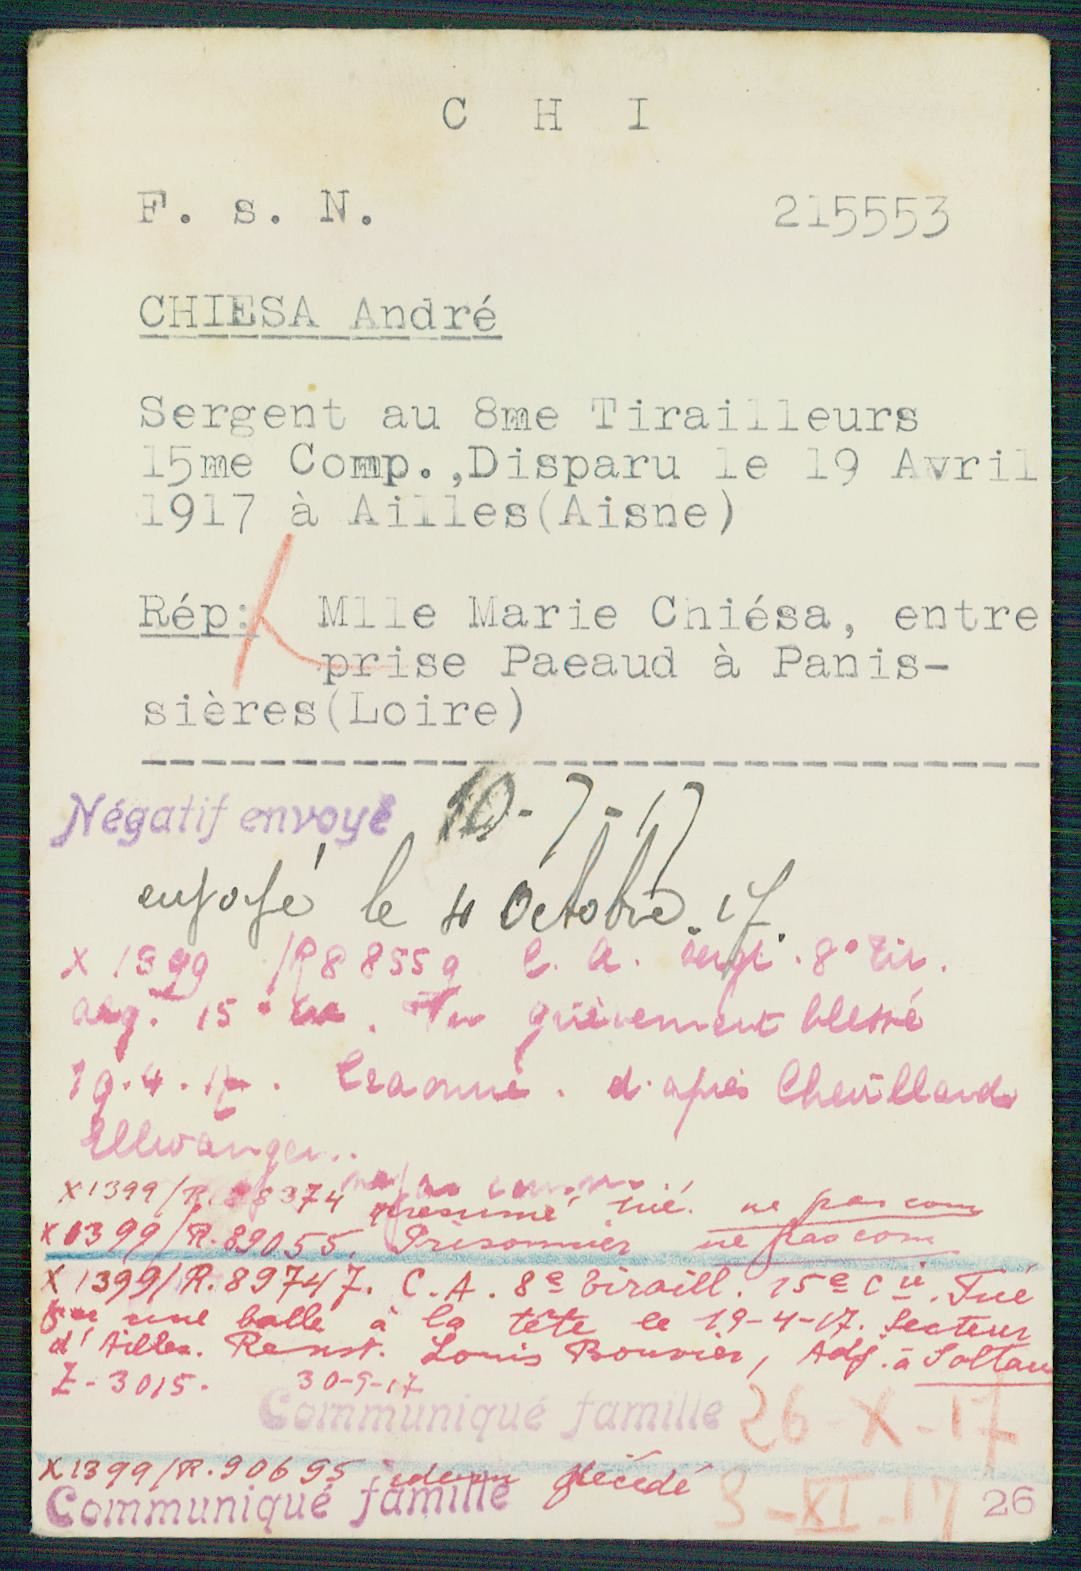 C H I
F. s. N. 215553
CHIESA André
Sergent au 8me Tirailleurs
15me Comp.,Disparu le 19 Avril
1917 à Ailles(Aisne)
Rép: Mlle Marie Chiésa, entre
prise Paeaud à Panis-
sières(Loire)
Négatif envoyé 10-7-17
le 4 Octobre. 17.
X 1399 /R 88559 C. A. sergt. 8° Tir.
15° Cie. Vu grièvement blessé
19.4.17. Craonne. d'après Chevillard
Ellwangen..
X1399/R. 88374 présumé tué. ne pas com
X 1399/R.89055. Prisonnier ne pas com
X 1399/R.89747. C.A. 8e tiraill. 15e Cie. Tué
par une balle à la tête le 19-4-17. Secteur
d'Ailles. Renst. Louis Bouvier, Adj. à Soltau
Z-3015. 30-9-17
Communiqué famille 26-X-17
X1399/R.90695 idem décédé
Communiqué famille 3-XI-17 26